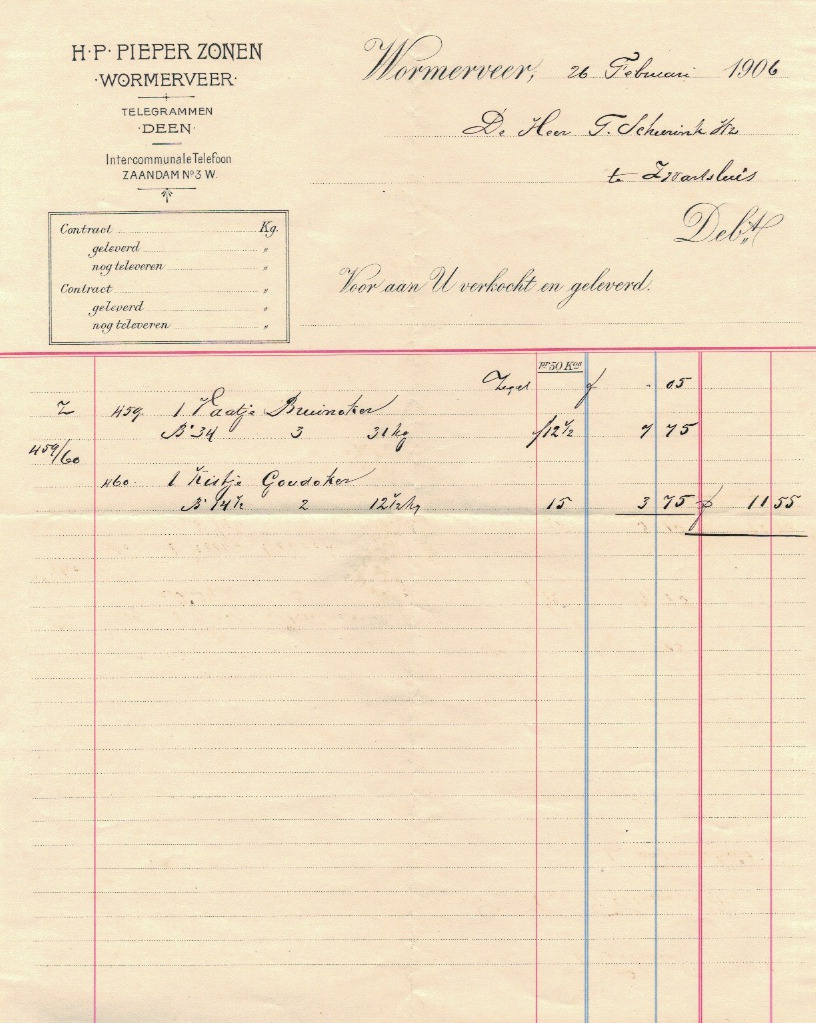 H·P· PIEPER ZONEN
·WORMERVEER·
TELEGRAMMEN
·DEEN·
Intercommunale Telefoon
ZAANDAM No 3 W.
Wormerveer, 26 Februari 1906
De Heer T. Schurink Hz
te Zwartsluis
Debt
Contract Kg.
geleverd "
nog te leveren "
Contract "
geleverd "
nog te leveren "
Voor aan U verkocht en geleverd.
pr 50 Kos
Zegel f - 05
Z 459. 1 Vaatje Bruinoker
B. 34 3 31 kg f12 1/2 7 75
459/60
460. 1 Kistje Goudoker
B. 14 1/2 2 12 1/2 kg 15 3 75 f 11 55